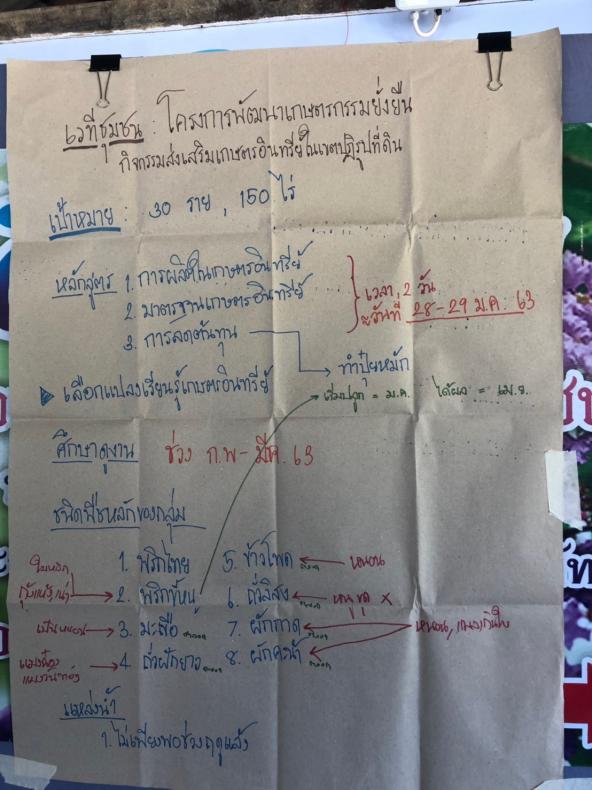 เวทีชุมชน : โครงการพัฒนาเกษตรกรรมยั่งยืน
กิจกรรมส่งเสริมเกษตรอินทรีย์ในเขตปฏิรูปที่ดิน
เป้าหมาย : 30 ราย , 150 ไร่
หลักสูตร 1. การผลิตในเกษตรอินทรีย์
2. มาตรฐานเกษตรอินทรีย์
3. การลดต้นทุน
เวลา, 2 วัน
วันที่ 28-29 ม.ค. 63
ทำปุ๋ยหมัก
เลือกแปลงเรียนรู้เกษตรอินทรีย์
เริ่มปลูก = ม.ค. ได้ผล = เม.ย.
ศึกษาดูงาน ช่วง ก.พ - มีค. 63
ชนิดพืชหลักของกลุ่ม
1. พริกไทย 5. ข้าวโพด หนอน
ใบหงิก
กุ้งแห้ง, เน่า 2. พริกขี้หนู 6. ถั่วลิสง หนู ขุด X
หนอน 3. มะเขือ 7. ผักกาด หนอน, แมลงกินใบ
4. ถั่วฝักยาว 8. ผักคะน้า
แหล่งน้ำ
1. ไม่เพียงพอช่วงฤดูแล้ง